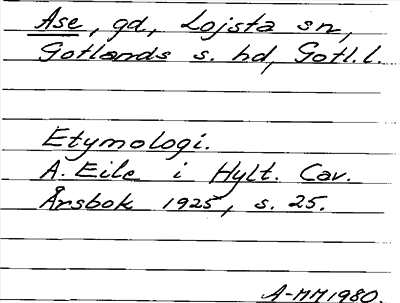 Ase, gd, Lojsta sn,
Gotlands s. hd, Gotl.l.
Etymologi.
A. Eile i Hylt. Cav.
Årsbok 1925, s. 25.
A-MM 1980.